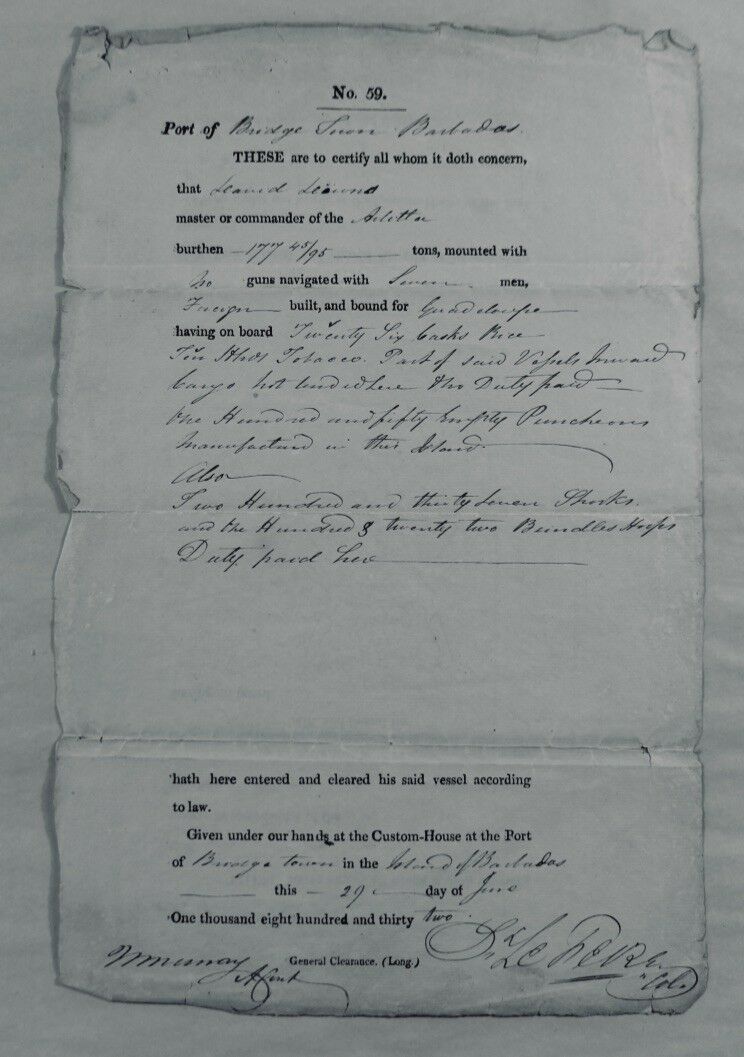 No. 59.
Port of Bridge Town Barbados.
THESE are to certify all whom it doth concern,
that
master or commander of the
burthen — 177 45/95 — tons, mounted with
No guns navigated with Seven men,
Foreign built, and bound for Guadeloupe
having on board Twenty Six Casks Rice
Ten Hhds Tobacco. Part of said Vessels Inward
Cargo not landed here & no Duty paid —
One Hundred and fifty Empty Puncheons
Manufactured in this Island
Also
Two Hundred and thirty Seven Shooks
and One Hundred & twenty two Bundles Hoops
Duty paid here
hath here entered and cleared his said vessel according
to law.
Given under our hands at the Custom-House at the Port
of Bridge town in the Island of Barbados
— this — 29 — day of June
One thousand eight hundred and thirty two.
General Clearance. (Long.)
Col